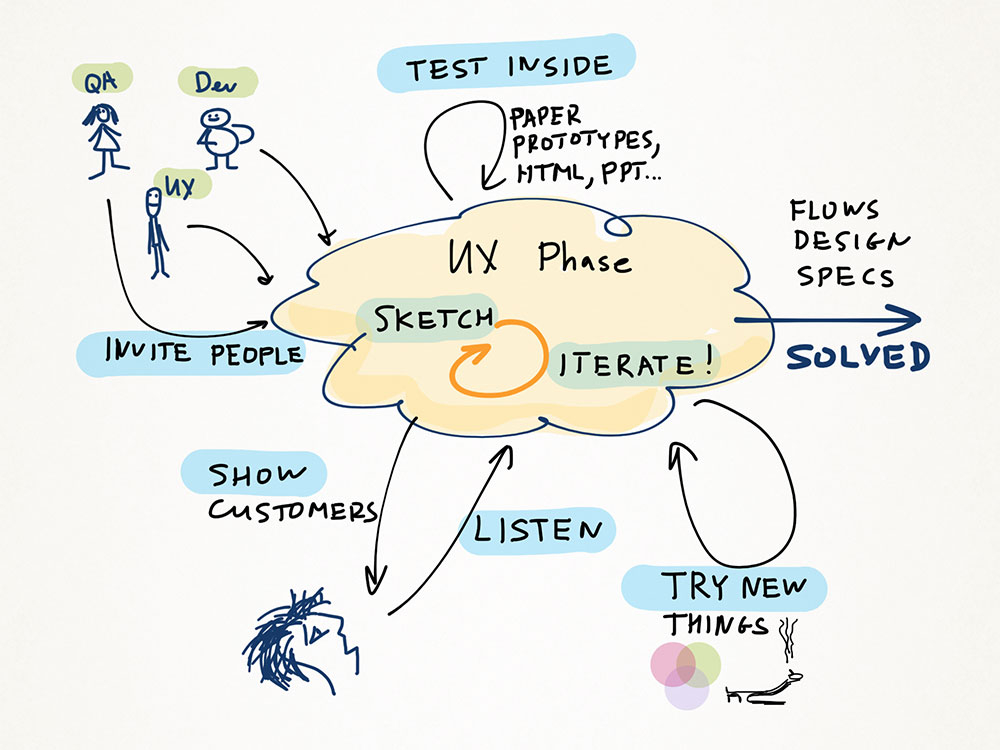 QA
Dev
UX
INVITE PEOPLE
TEST INSIDE
PAPER
PROTOTYPES,
HTML, PPT...
UX Phase
SKETCH
ITERATE!
FLOWS
DESIGN
SPECS
SOLVED
SHOW
CUSTOMERS
LISTEN
TRY NEW
THINGS